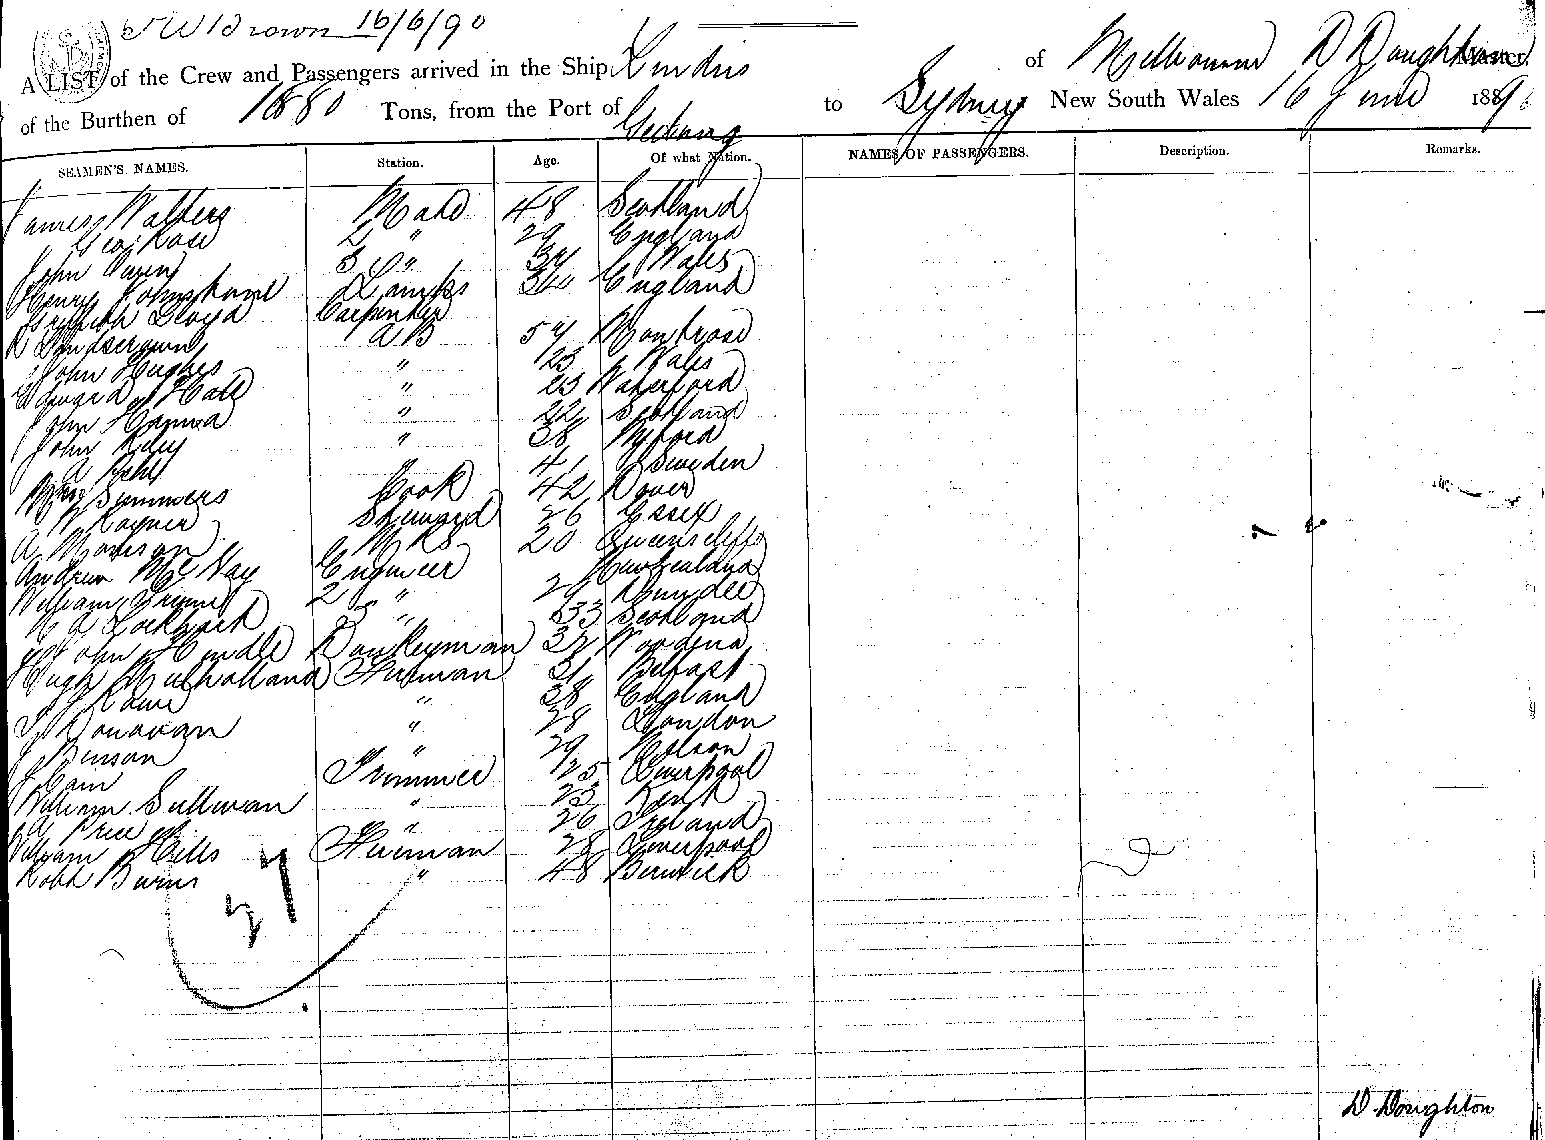 16/6/90
A LIST of the Crew and Passengers arrived in the Ship of Melbourne D Doughton Master,
of the Burthen of 1880 Tons, from the Port of Geelong to Sydney New South Wales 16 June 1890
SEAMEN'S NAMES. Station. Age. Of what Nation. NAMES OF PASSENGERS. Description. Remarks.
James Walters Mate 48 Scotland
Geo Rose 2 " 29 England
John Owen 3 " Wales
Henry Johnstone Lamps England
Griffith Lloyd Carpenter
AB 54 Montrose
John Hughes " 23 Wales
Edward Hall " 23 Waterford
John Hanna " 22 Scotland
John Riley " 38 Wexford
A " 41 Sweden
Wm Summers Cook 42 Dover
W Rayner Steward 26 Essex
A Morrison M R S 20 Queenscliffe
Andrew McKay Engineer Newzealand
William 2 " 29 Dundee
Lockhart 3 " 33 Scotland
John Hindle Donkeyman 32
Hugh Mulholland Fireman 31 Belfast
J Rowe " 38 England
J Donovan " 28 London
J Benson " 29 Nelson
J Cain Trimmer 25 Liverpool
William Sullivan " 23 Kent
A Price " 26 Ireland
William Hills Fireman 28 Liverpool
Robt Burns " 48 Berwick
27
D. Doughton